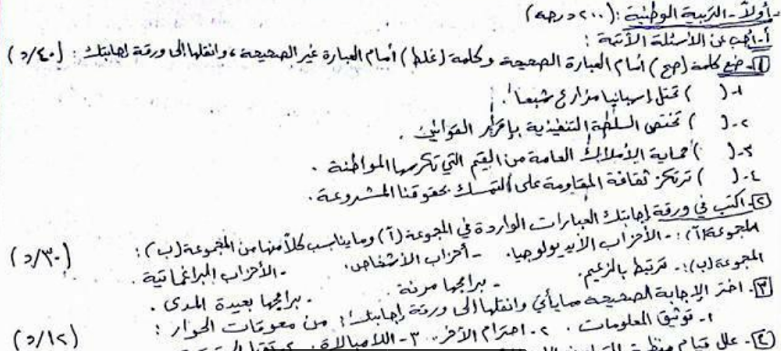 أولاً - التربية الوطنية: (٢٠٠ درجة)
أ- أجب عن الأسئلة الآتية:
١- ضع كلمة (صح) أمام العبارة الصحيحة وكلمة (غلط) أمام العبارة غير الصحيحة، وانقلها إلى ورقة إجابتك: (٤٠/د)
١- ( ) تمثل إسبانيا مزارع شبعا.
٢- ( ) تختص السلطة التنفيذية بإقرار القوانين.
٣- ( ) حماية الأملاك العامة من القيم التي تكرسها المواطنة.
٤- ( ) ترتكز ثقافة المقاومة على التمسك بحقوقنا المشروعة.
٢- اكتب في ورقة إجابتك العبارات الواردة في المجموعة (أ) وما يناسب كلاً منها من المجموعة (ب): (٣٠/د)
المجموعة (أ): - الأحزاب الأيديولوجيا. - أحزاب الأشخاص. - الأحزاب البراغماتية.
المجموعة (ب): - ترتبط بالزعيم. - برامجها مرنة. - برامجها بعيدة المدى.
٣- اختر الإجابة الصحيحة مما يأتي وانقلها إلى ورقة إجابتك: من معوقات الحوار: (١٢/د)
١- توثيق المعلومات. ٢- احترام الآخر. ٣- اللامبالاة.
٤- علل قيام منظمة